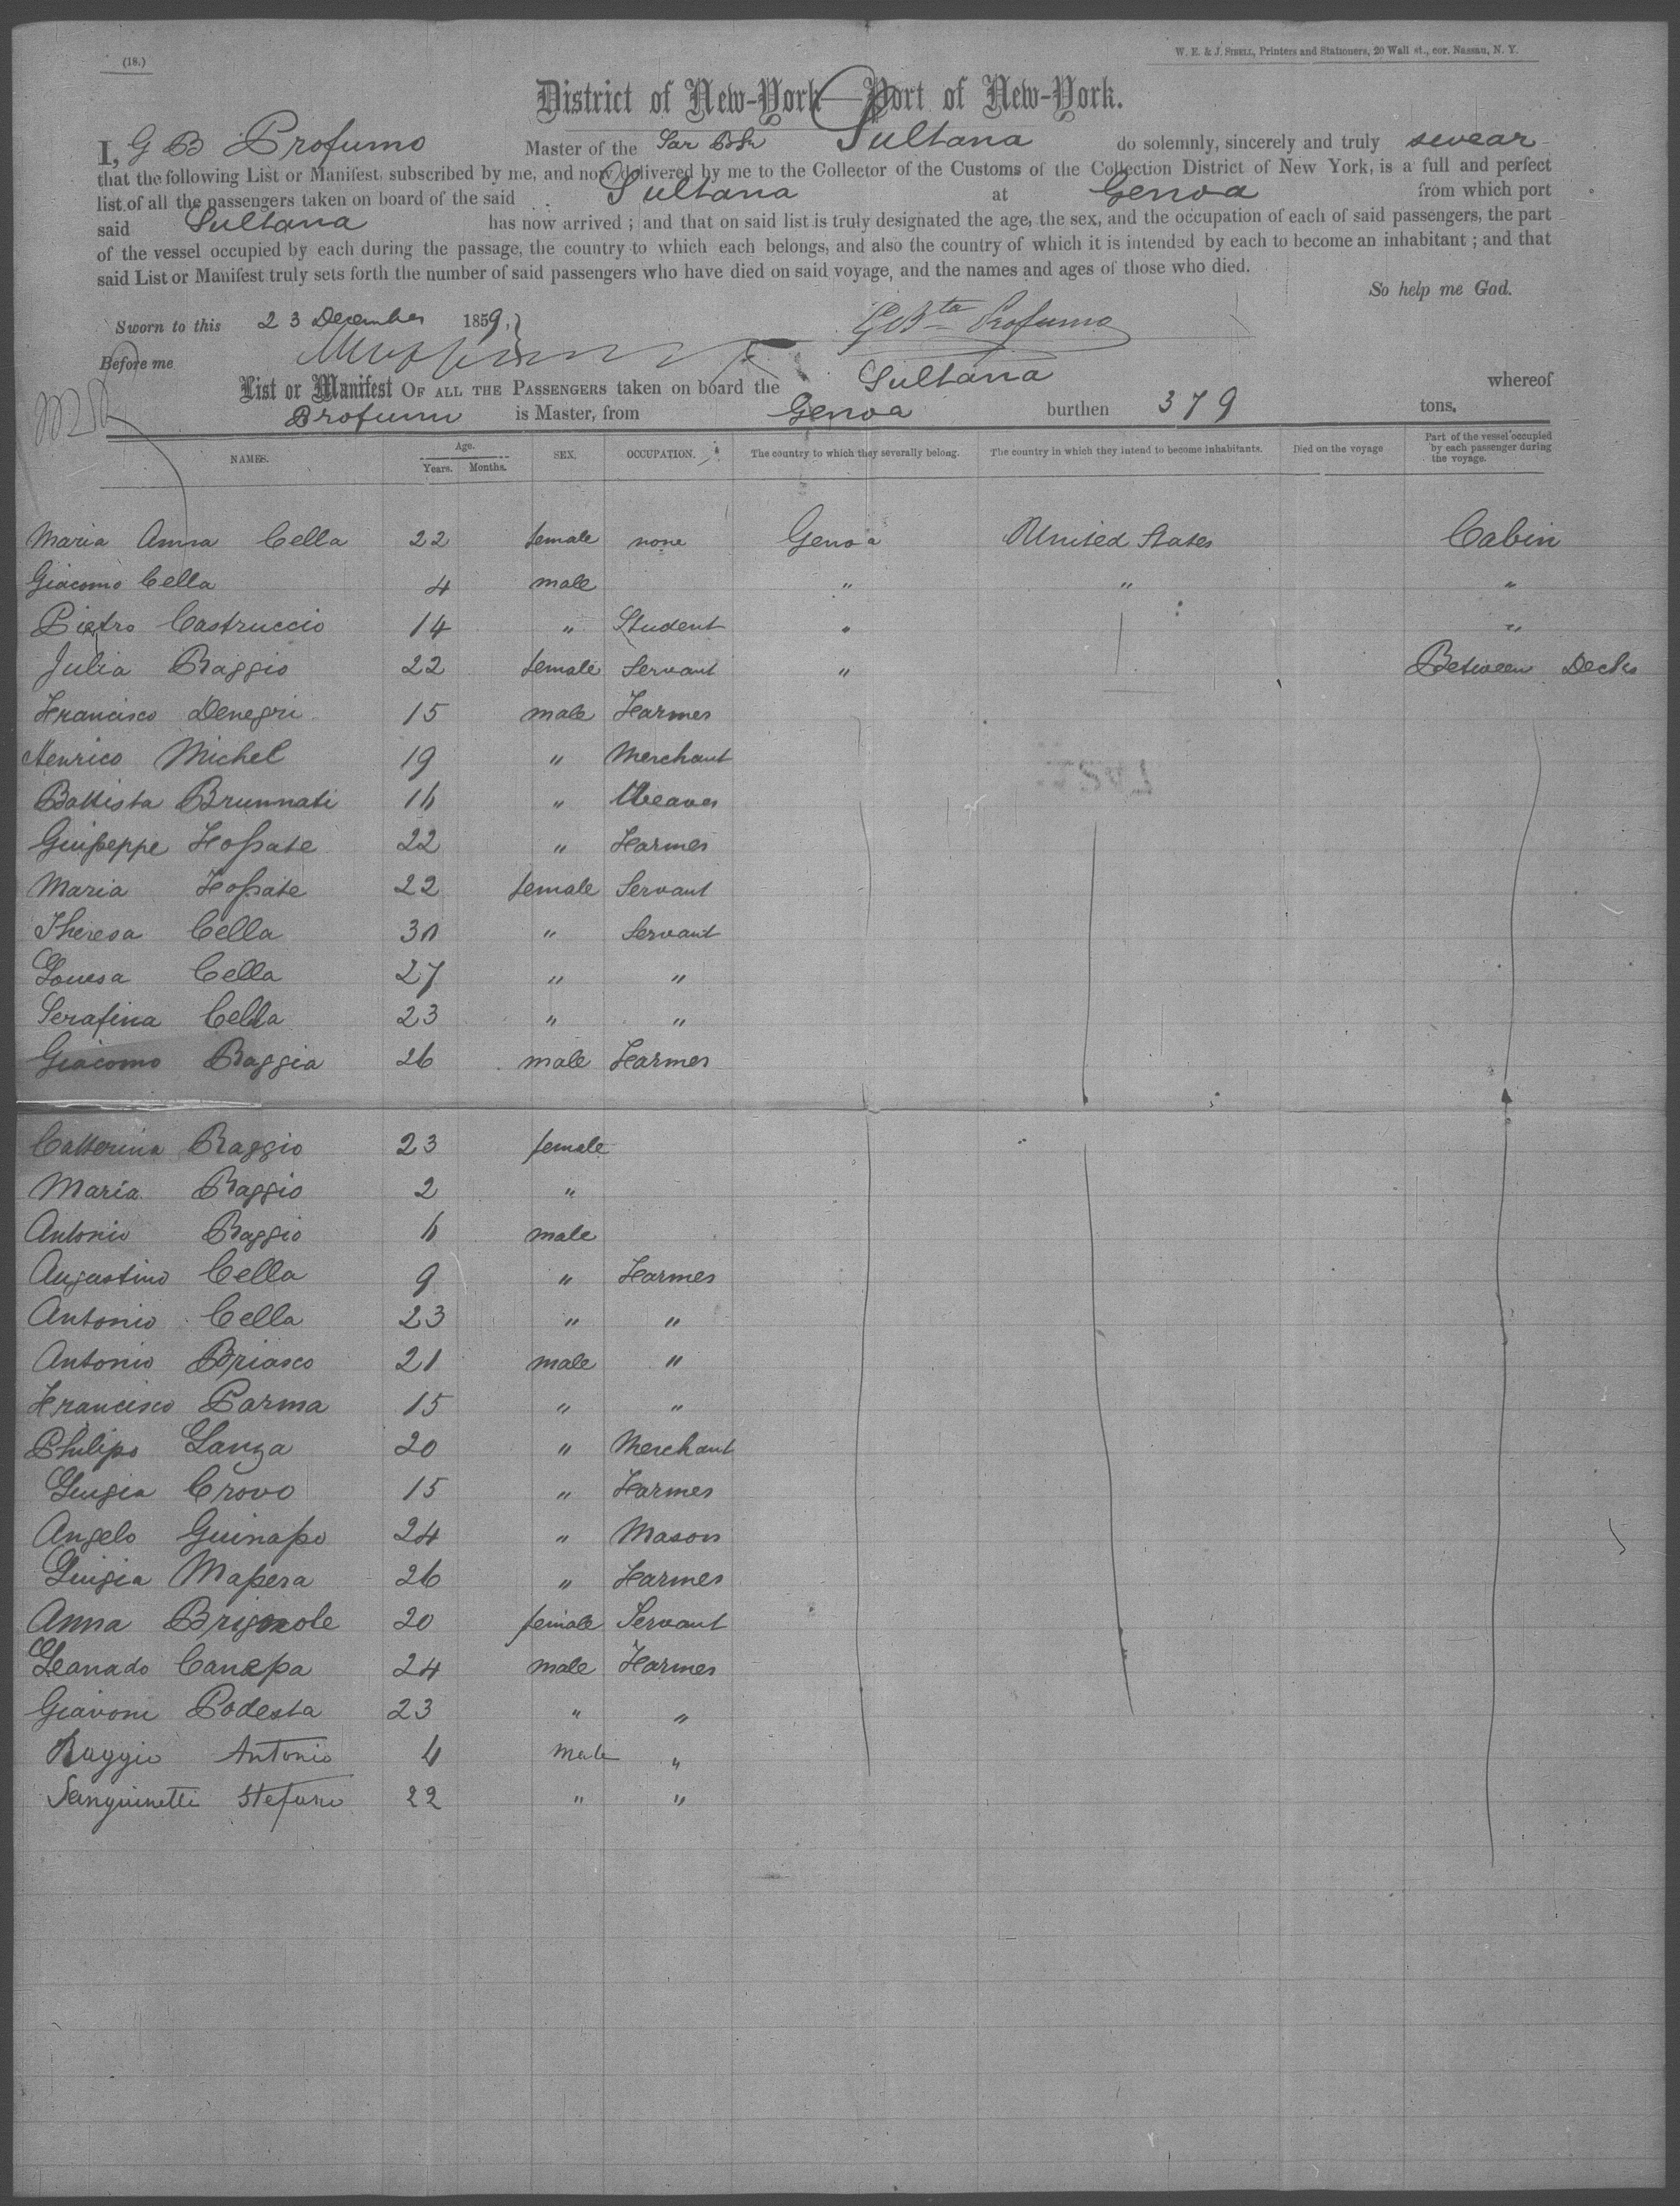 (18.)
W. E. & J. SIBELL, Printers and Stationers, 20 Wall st., cor. Nassau, N. Y.
District of New-York—Port of New-York.
I, G B Profumo Master of the Sar Bk Sultana do solemnly, sincerely and truly swear
that the following List or Manifest, subscribed by me, and now delivered by me to the Collector of the Customs of the Collection District of New York, is a full and perfect
list of all the passengers taken on board of the said Sultana at Genoa from which port
said Sultana has now arrived ; and that on said list is truly designated the age, the sex, and the occupation of each of said passengers, the part
of the vessel occupied by each during the passage, the country to which each belongs, and also the country of which it is intended by each to become an inhabitant ; and that
said List or Manifest truly sets forth the number of said passengers who have died on said voyage, and the names and ages of those who died.
So help me God.
Sworn to this 23 December 1859,
GBta Profumo
Before me
List or Manifest OF ALL THE PASSENGERS taken on board the Sultana whereof
Profumo is Master, from Genoa burthen 379 tons.
NAMES. Age. Years. Months. SEX. OCCUPATION. The country to which they severally belong. The country in which they intend to become inhabitants. Died on the voyage Part of the vessel occupied by each passenger during the voyage.
Maria Anna Cella 22 female none Genoa United States Cabin
Giacomo Cella 4 male " " "
Pietro Castruccio 14 " Student " "
Julia Raggio 22 female Servant " Between Decks
Francisco Denegri 15 male Farmer
Henrico Michel 19 " Merchant
Battista Brunnati 16 " Weaver
Guiseppe Fossate 22 " Farmer
Maria Fossate 22 female Servant
Theresa Cella 30 " Servant
Louesa Cella 27 " "
Serafina Cella 23 " "
Giacomo Raggia 26 male Farmer
Catterina Raggio 23 female
Maria Raggio 2 "
Antonio Raggio 6 male
Augustino Cella 9 " Farmer
Antonio Cella 23 " "
Antonio Briasco 21 male "
Francisco Parma 15 " "
Philipo Lanza 20 " Merchant
Luigia Crovo 15 " Farmer
Angelo Guinasso 24 " Mason
Luigia Massera 26 " Farmer
Anna Brignole 20 female Servant
Leonado Canepa 24 male Farmer
Giavoni Podesta 23 " "
Raggio Antonio 4 male "
Sanguinetti Stefano 22 " "